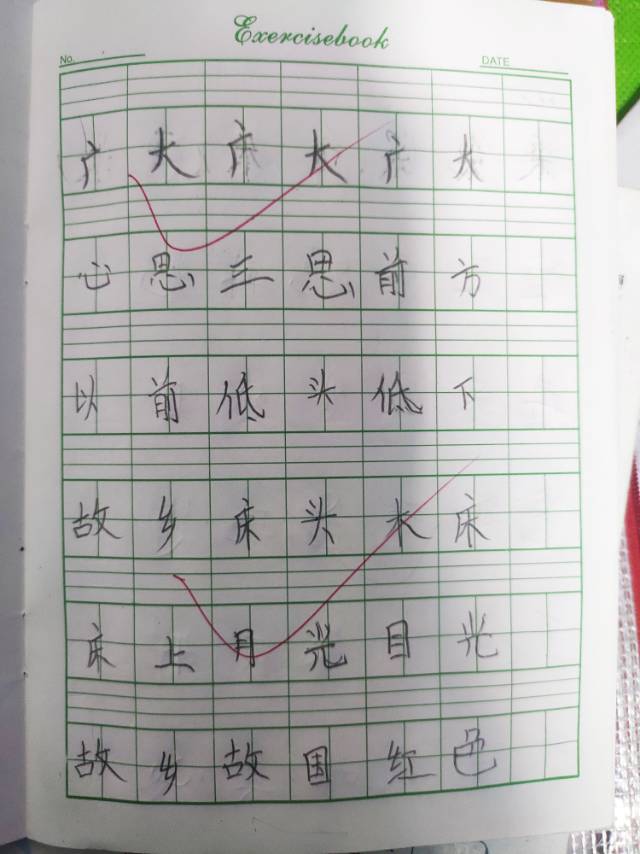 Exercisebook
No. DATE
广大广大广大
心思三思前方
以前低头低下
故乡床头木床
床上月光目光
故乡故国红色